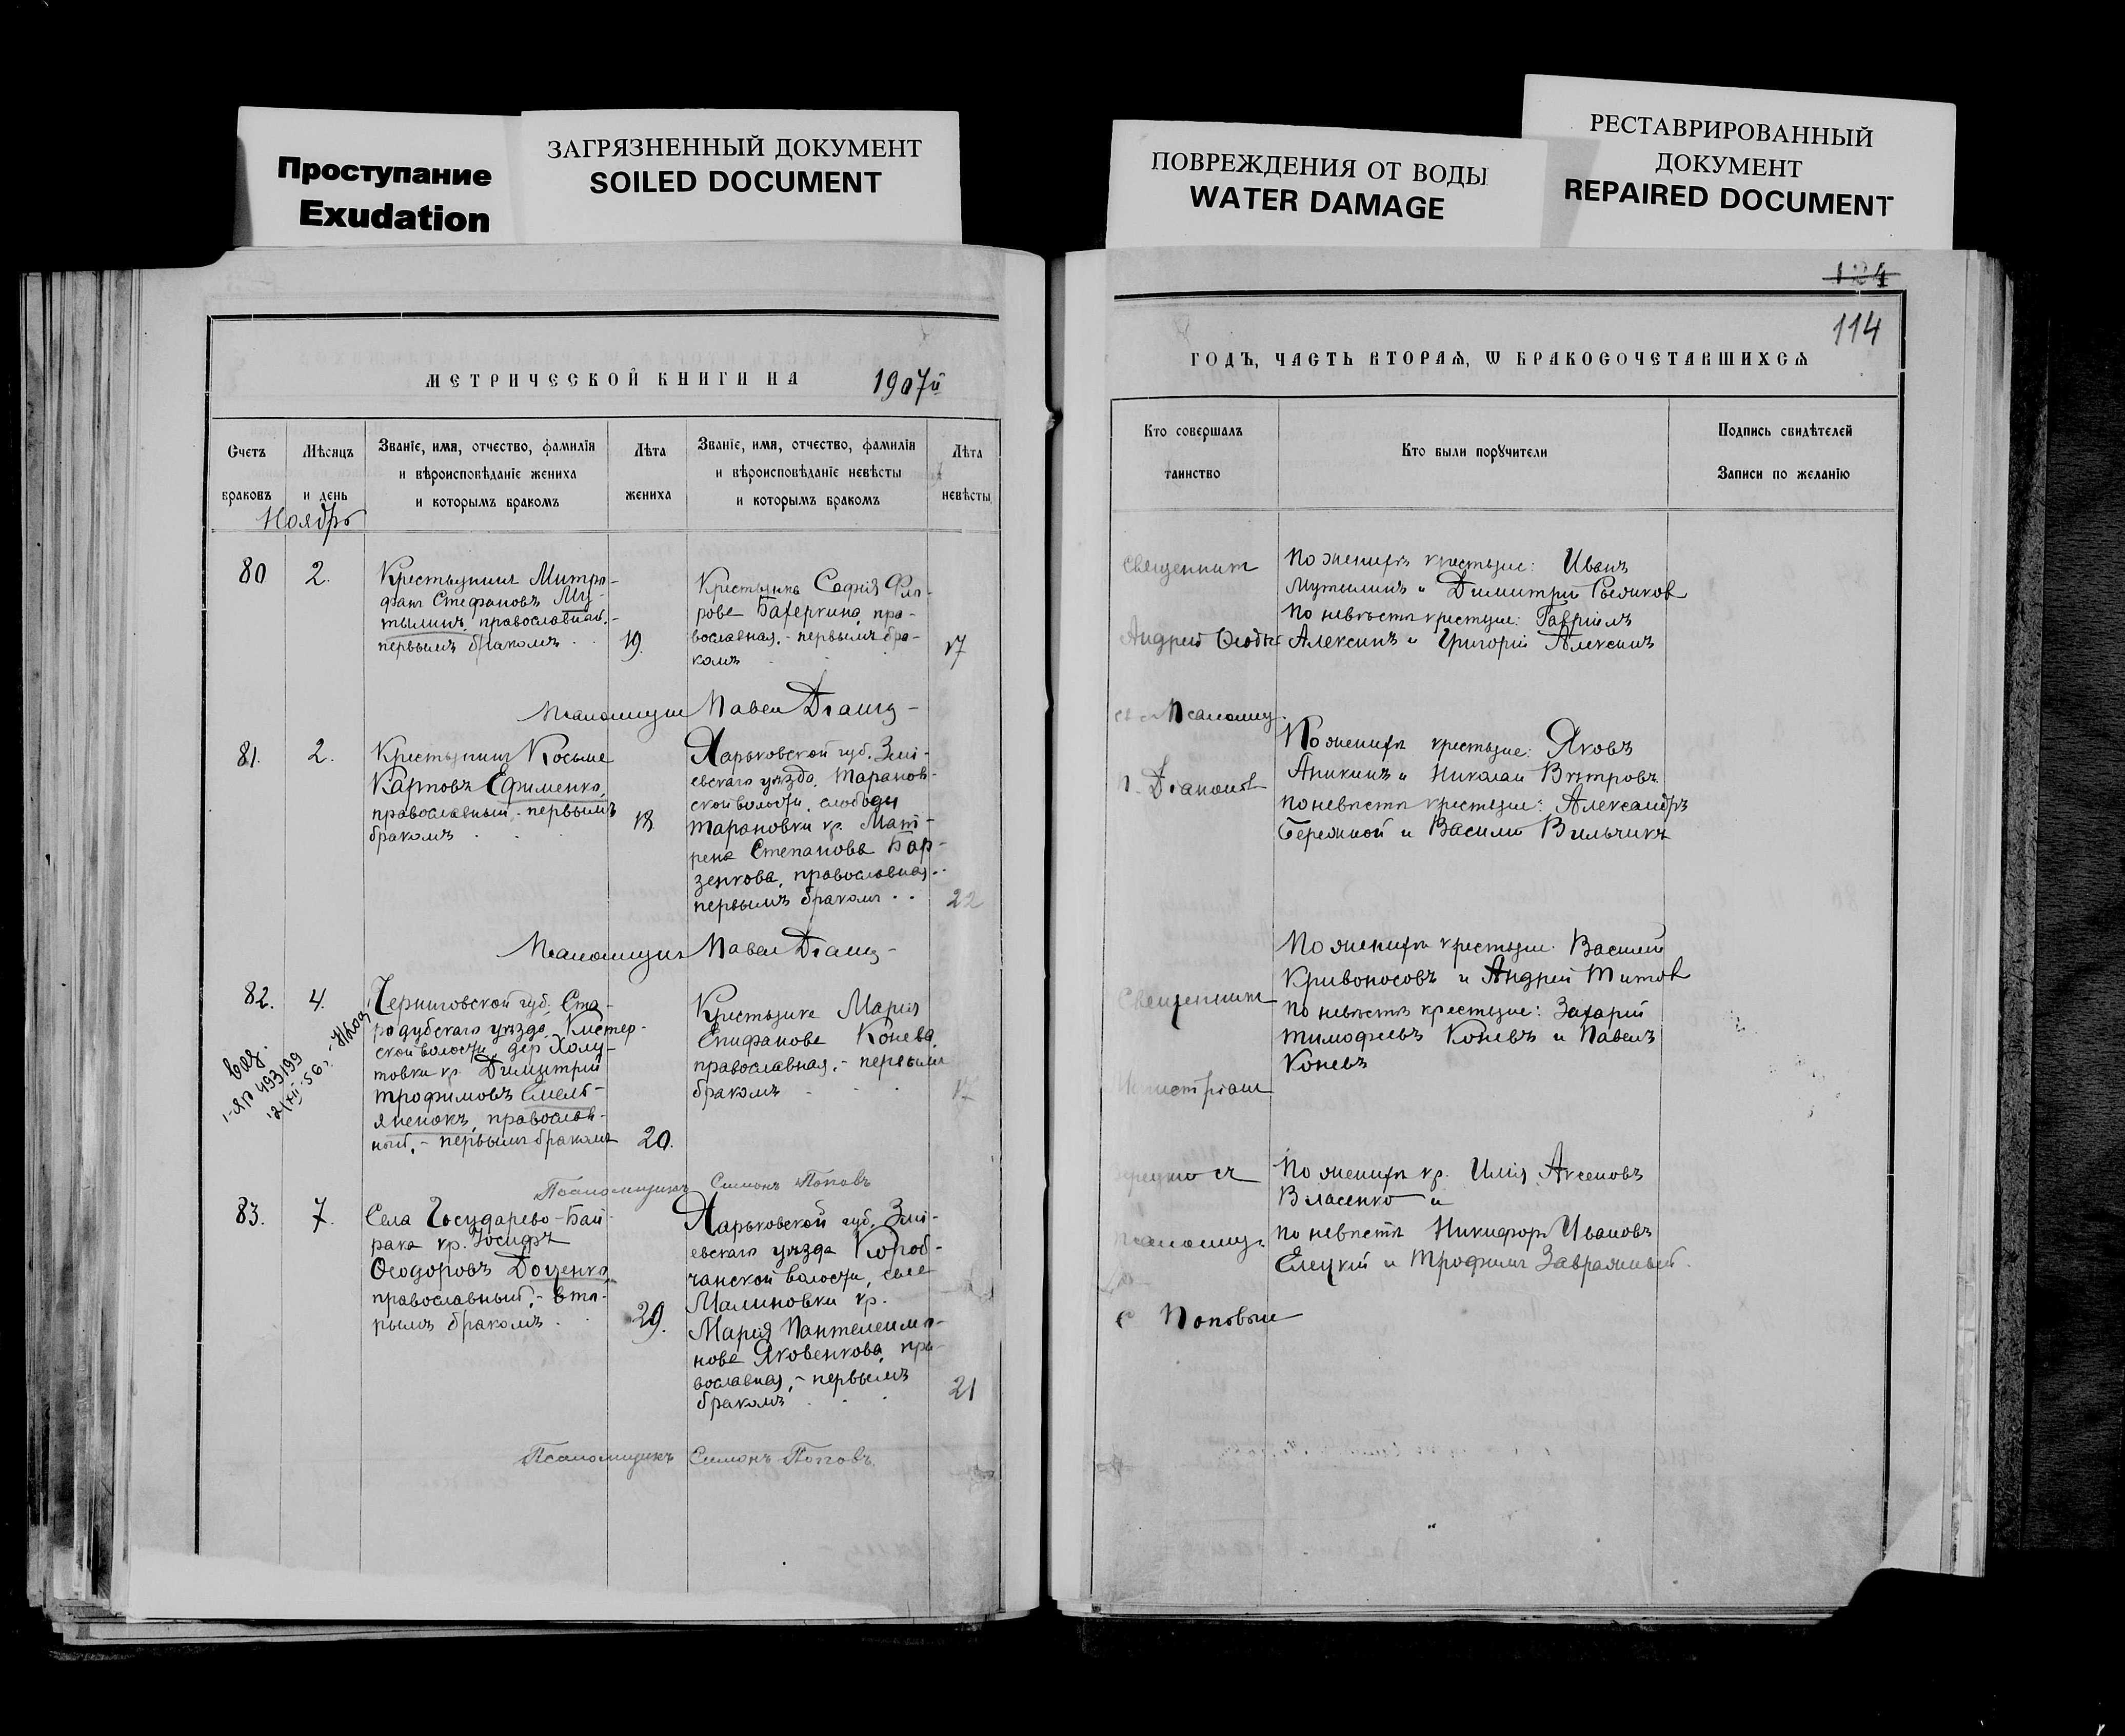 Проступание
Exudation
ЗАГРЯЗНЕННЫЙ ДОКУМЕНТ
SOILED DOCUMENT
ПОВРЕЖДЕНИЯ ОТ ВОДЫ
WATER DAMAGE
РЕСТАВРИРОВАННЫЙ
ДОКУМЕНТ
REPAIRED DOCUMENT
МЕТРИЧЕСКОЙ КНИГИ НА 1907й
Счетъ
браковъ
Мѣсяцъ
и день
Ноябрь
Званіе, имя, отчество, фамилія
и вѣроисповѣданіе жениха
и которымъ бракомъ
Лѣта
жениха
Званіе, имя, отчество, фамилія
и вѣроисповѣданіе невѣсты
и которымъ бракомъ
Лѣта
невѣсты
80
2.
Крестьянинъ Митро-
фанъ Стефановъ Му-
тылинъ, православный.-
первымъ бракомъ
19.
Крестьянка Софія
рова Бахаркина, пра-
вославная.- первымъ бра-
комъ
17
Псаломщикъ Павелъ
81.
2.
Крестьянинъ Косьма
Карповъ Ефименко,
православный,- первымъ
бракомъ
18
Харьковской губ. Змі-
евскаго уѣзда, Таранов-
ской волости, слободы
Тарановки кр. Мат-
рена Степанова Бор-
зенкова, православная.-
первымъ бракомъ
22
Псаломщикъ Павелъ
82.
4.
Черниговской губ. Ста-
родубскаго уѣзда,
ской волости, дер.
товки кр. Димитрій
Трофимовъ Емель-
яненокъ, православ-
ный,- первымъ бракомъ
20.
Крестьянка Марія
Епифанова Конева,
православная,- первымъ
бракомъ
17
Псаломщикъ Симонъ Поповъ
83.
7.
Села Государево-Бай-
рака кр. Іосифъ
Ѳеодоровъ Доценко,
православный,- вто-
рымъ бракомъ
29.
Харьковской губ. Змі-
евскаго уѣзда Короб-
чанской волости, села
Малиновки кр.
Марія Пантелеимо-
нова Яковенкова, пра-
вославная,- первымъ
бракомъ
21
Псаломщикъ Симонъ Поповъ.
124
114
ГОДЪ, ЧАСТЬ ВТОРАЯ, Ѡ БРАКОСОЧЕТАВШИХСЯ
Кто совершалъ
таинство
Кто были поручители
Подпись свидѣтелей
Записи по желанію
Священник
Андрей
По женихѣ крестьяне: Иванъ
Мутылинъ и Димитрій
По невѣстѣ крестьяне: Гавріилъ
Алексинъ и Григорій Алексинъ
По женихѣ крестьяне: Яковъ
Аникинъ и Николай Вѣтровъ
По невѣстѣ крестьяне: Александръ
Бережной и Василій Вильчикъ
Священник
По женихѣ крестьяне: Василій
Кривоносовъ и Андрей Титов
По невѣстѣ крестьяне: Захарій
Тимофеевъ Коневъ и Павелъ
Коневъ
По женихѣ кр. Илія Аксеновъ
Власенко и
по невѣстѣ Никифоръ Ивановъ
Елецкій и Трофимъ
с Поповым